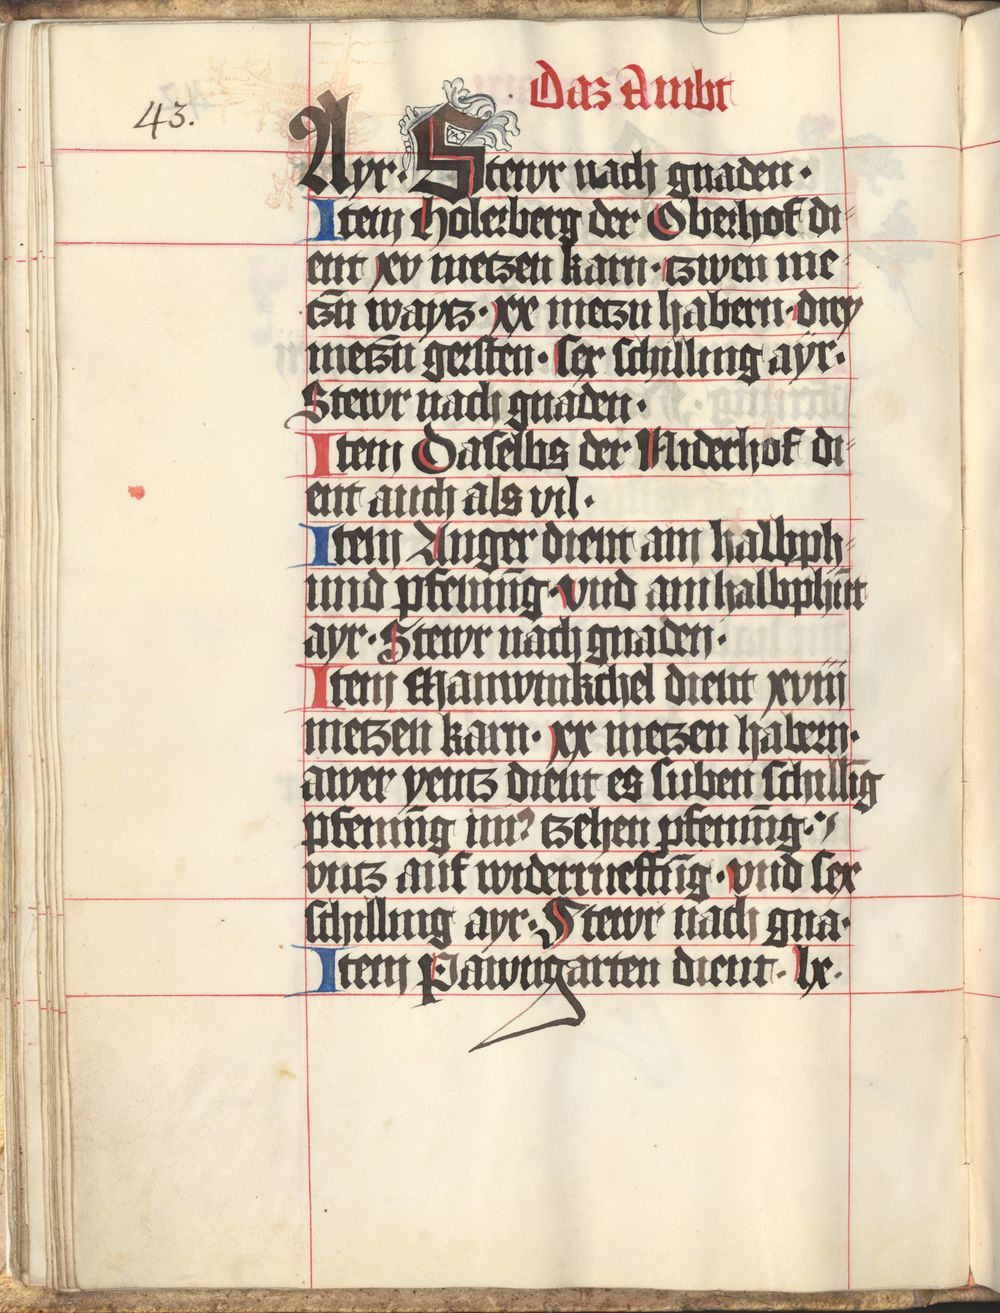 Das Ambt
43.
Ayr· Stewr nach gnaden·
Item Holerberg der Oberhof di⸗
ent xv metzen karn· tzwen me⸗
tzn̄ waytz· xx metzn habern· drey
metzn̄ gersten· sex schilling aÿr·
Stewr nach gnaden·
Item Daselbs der Niderhof di⸗
ent auch als vil·
Item Anger dient am halbph⸗
und pfenning· vnd am halbphūt
ayr· Stewr nach gnaden·
Item Mainwinkchel dient xviij
metzen karn· xx metzen habern·
awer yentz dient es suben schillīg
pfennīg tzehen pfennīg·
vntz auf widerrueffūg· vnd sex
schilling ayr· Stewr nach gna·
Item Pawngarten dient· lx·